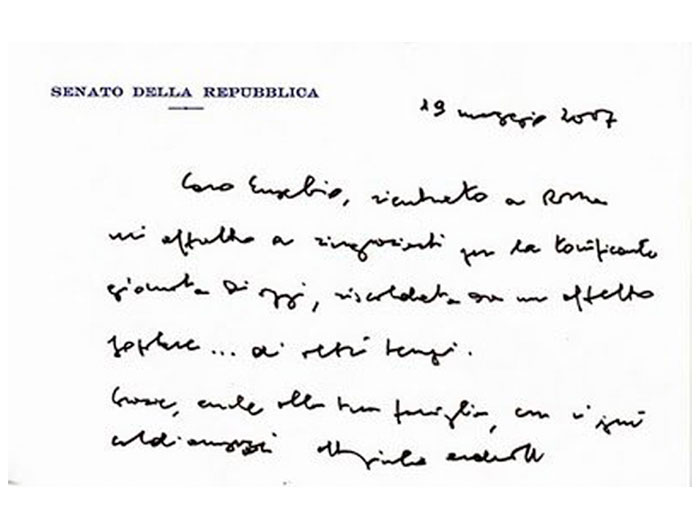 SENATO DELLA REPUBBLICA
19 maggio 2007
Caro Eusebio, rientrato a Roma
mi affretto a ringraziarti per la tonificante
giornata di oggi, riscaldata da un affetto
popolare... di altri tempi.
Grazie, anche alla tua famiglia, con i più
cordiali Giulio Andreotti